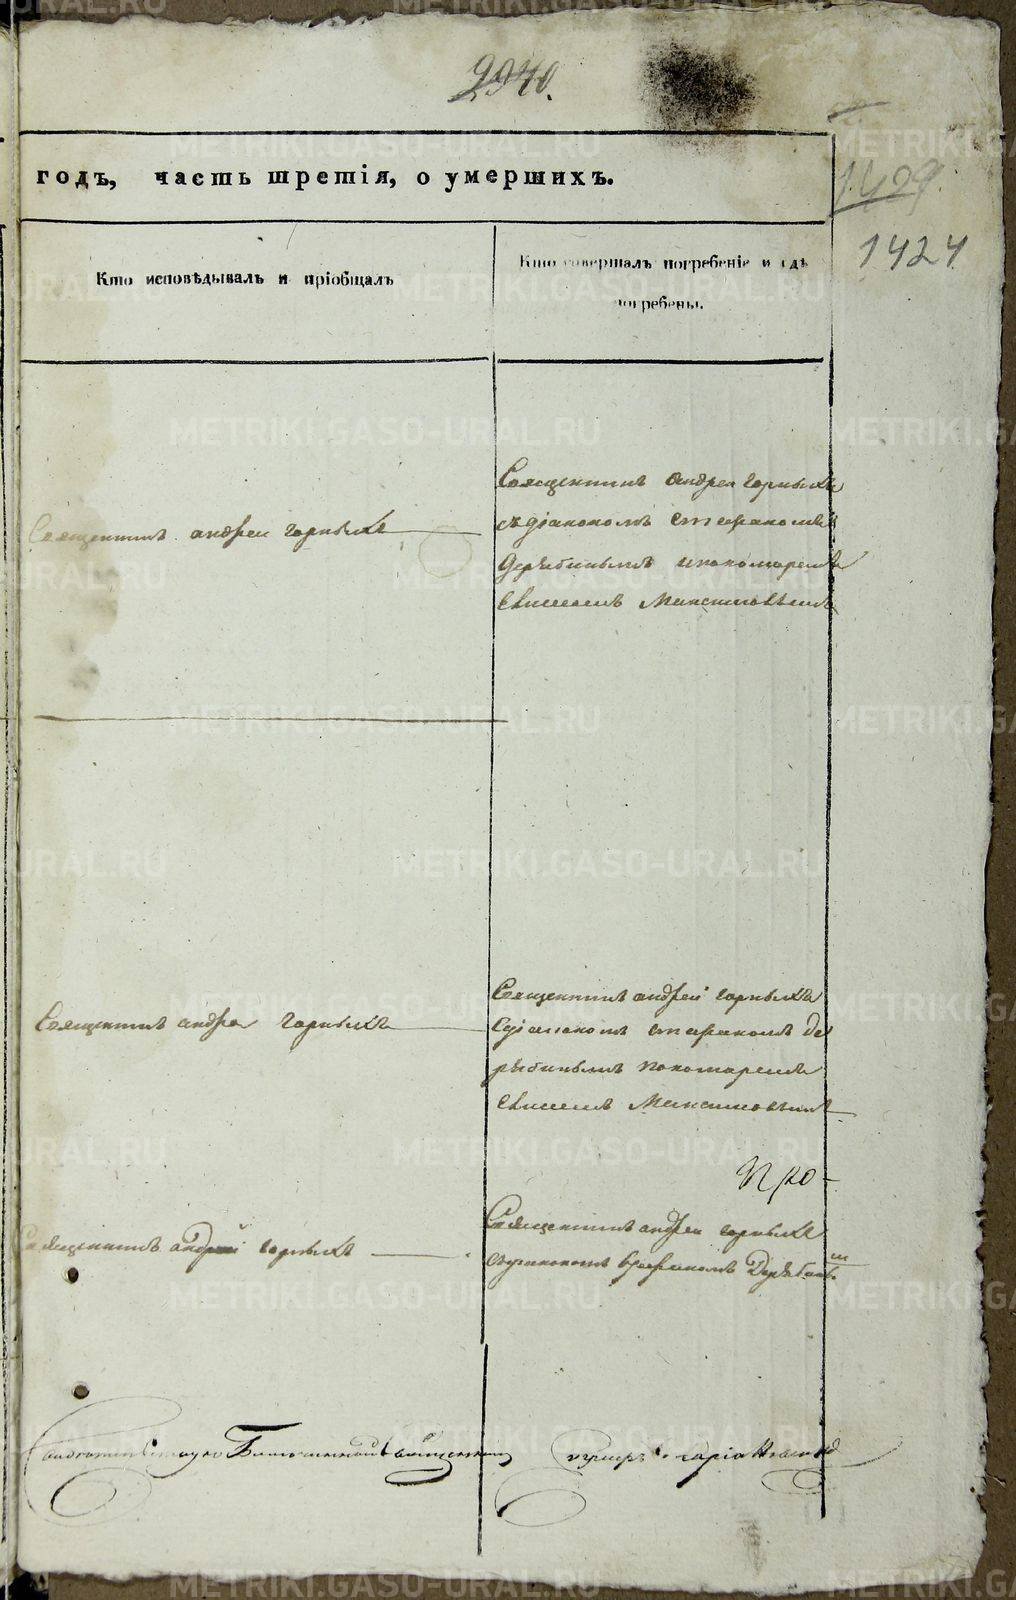 2940.
годъ, часть третія, о умершихъ.
1429.
1424
Кто исповѣдывалъ и пріобщалъ
Кто совершалъ погребеніе и гдѣ
погребены.
Священникъ андреи горныхъ
Священникъ андреи горныхъ
съ діакономъ стефаномъ
Дерябинымъ
Максимовымъ
Священникъ андреи горныхъ
Священникъ андрей горныхъ
Сдіакономъ стефаномъ Де
рябинымъ пономаремъ
Максимовымъ
Про-
Священникъ андрей горныхъ
Священникъ андреи горныхъ
сдіакономъ Стефаномъ Дерябинымъ
METRIKI.GASO-URAL.RU